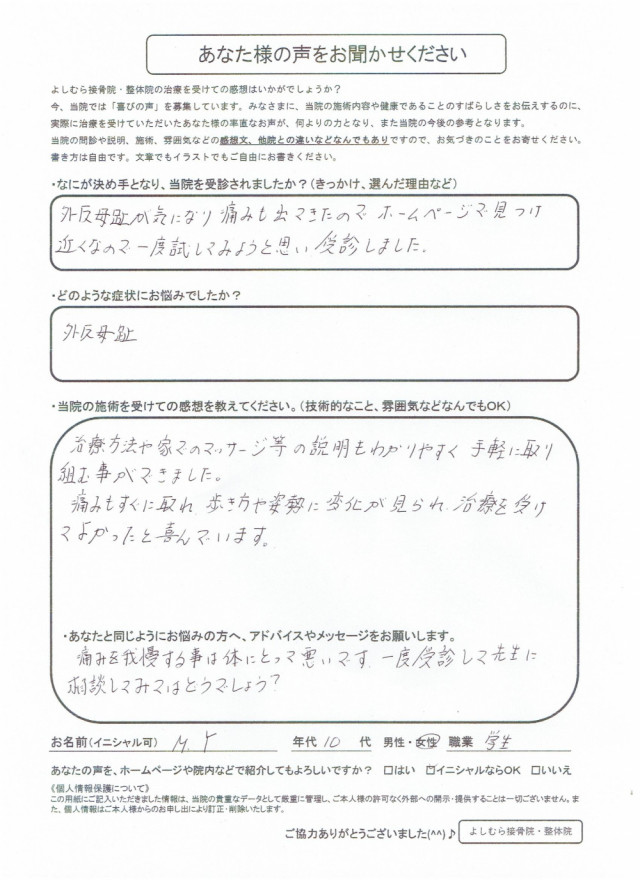 あなた様の声をお聞かせください
よしむら接骨院・整体院の治療を受けての感想はいかがでしょうか？
今、当院では「喜びの声」を募集しています。みなさまに、当院の施術内容や健康であることのすばらしさをお伝えするのに、
実際に治療を受けていただいたあなた様の率直なお声が、何よりの力となり、また当院の今後の参考となります。
当院の問診や説明、施術、雰囲気などの感想文、他院との違いなどなんでもありですので、お気づきのことをお寄せください。
書き方は自由です。文章でもイラストでもご自由にお書きください。
・なにが決め手となり、当院を受診されましたか？(きっかけ、選んだ理由など)
外反母趾が気になり痛みも出てきたので ホームページで見つけ
近くなので一度試してみようと思い 受診しました。
・どのような症状にお悩みでしたか？
外反母趾
・当院の施術を受けての感想を教えてください。(技術的なこと、雰囲気などなんでもOK)
治療方法や家でのマッサージ等の説明もわかりやすく 手軽に取り
組む事ができました。
痛みもすぐに取れ 歩き方や姿勢に変化が見られ 治療を受け
てよかったと喜んでいます。
・あなたと同じようにお悩みの方へ、アドバイスやメッセージをお願いします。
痛みを我慢する事は体にとって悪いです 一度受診して先生に
相談してみてはどうでしょう？
お名前(イニシャル可) M.Y 年代 10 代 男性・女性 職業 学生
あなたの声を、ホームページや院内などで紹介してもよろしいですか？ □はい ☑イニシャルならOK □いいえ
《個人情報保護について》
この用紙にご記入いただきました情報は、当院の貴重なデータとして厳重に管理し、ご本人様の許可なく外部への開示・提供することは一切ございません。ま
た、個人情報はご本人様からのお申し出により訂正・削除いたします。
ご協力ありがとうございました(^^)♪ よしむら接骨院・整体院